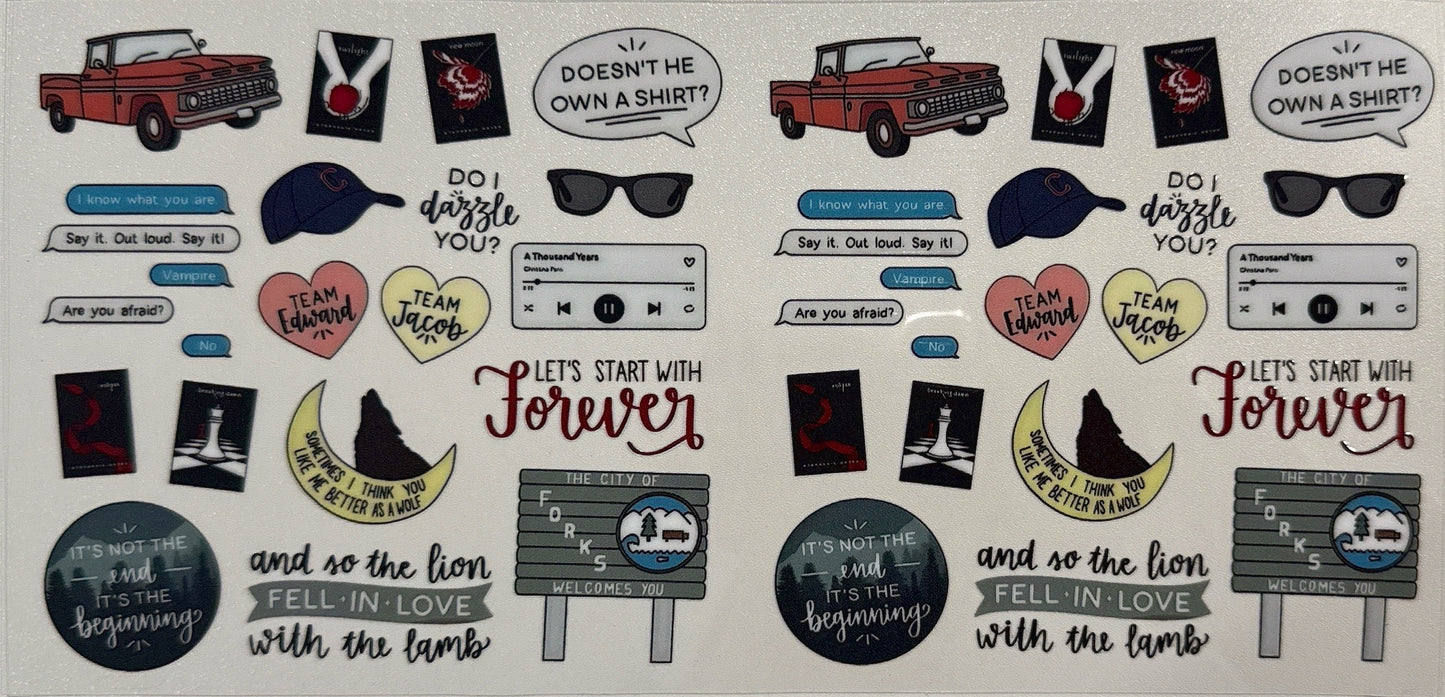 twilight
new moon
STEPHENIE MEYER
DOESN'T HE
OWN A SHIRT?
I know what you are.
Say it. Out loud. Say it!
Vampire.
Are you afraid?
No
C
DO I
dazzle
YOU?
A Thousand Years
Christina Perri
TEAM
Edward
TEAM
Jacob
LET'S START WITH
Forever
eclipse
breaking dawn
SOMETIMES I THINK YOU
LIKE ME BETTER AS A WOLF
THE CITY OF
FORKS
WELCOMES YOU
IT'S NOT THE
end
IT'S THE
beginning
and so the lion
FELL·IN·LOVE
with the lamb
twilight
new moon
DOESN'T HE
OWN A SHIRT?
I know what you are.
Say it. Out loud. Say it!
Vampire.
Are you afraid?
No
C
DO I
dazzle
YOU?
A Thousand Years
Christina Perri
TEAM
Edward
TEAM
Jacob
LET'S START WITH
Forever
eclipse
breaking dawn
SOMETIMES I THINK YOU
LIKE ME BETTER AS A WOLF
THE CITY OF
FORKS
WELCOMES YOU
IT'S NOT THE
end
IT'S THE
beginning
and so the lion
FELL·IN·LOVE
with the lamb